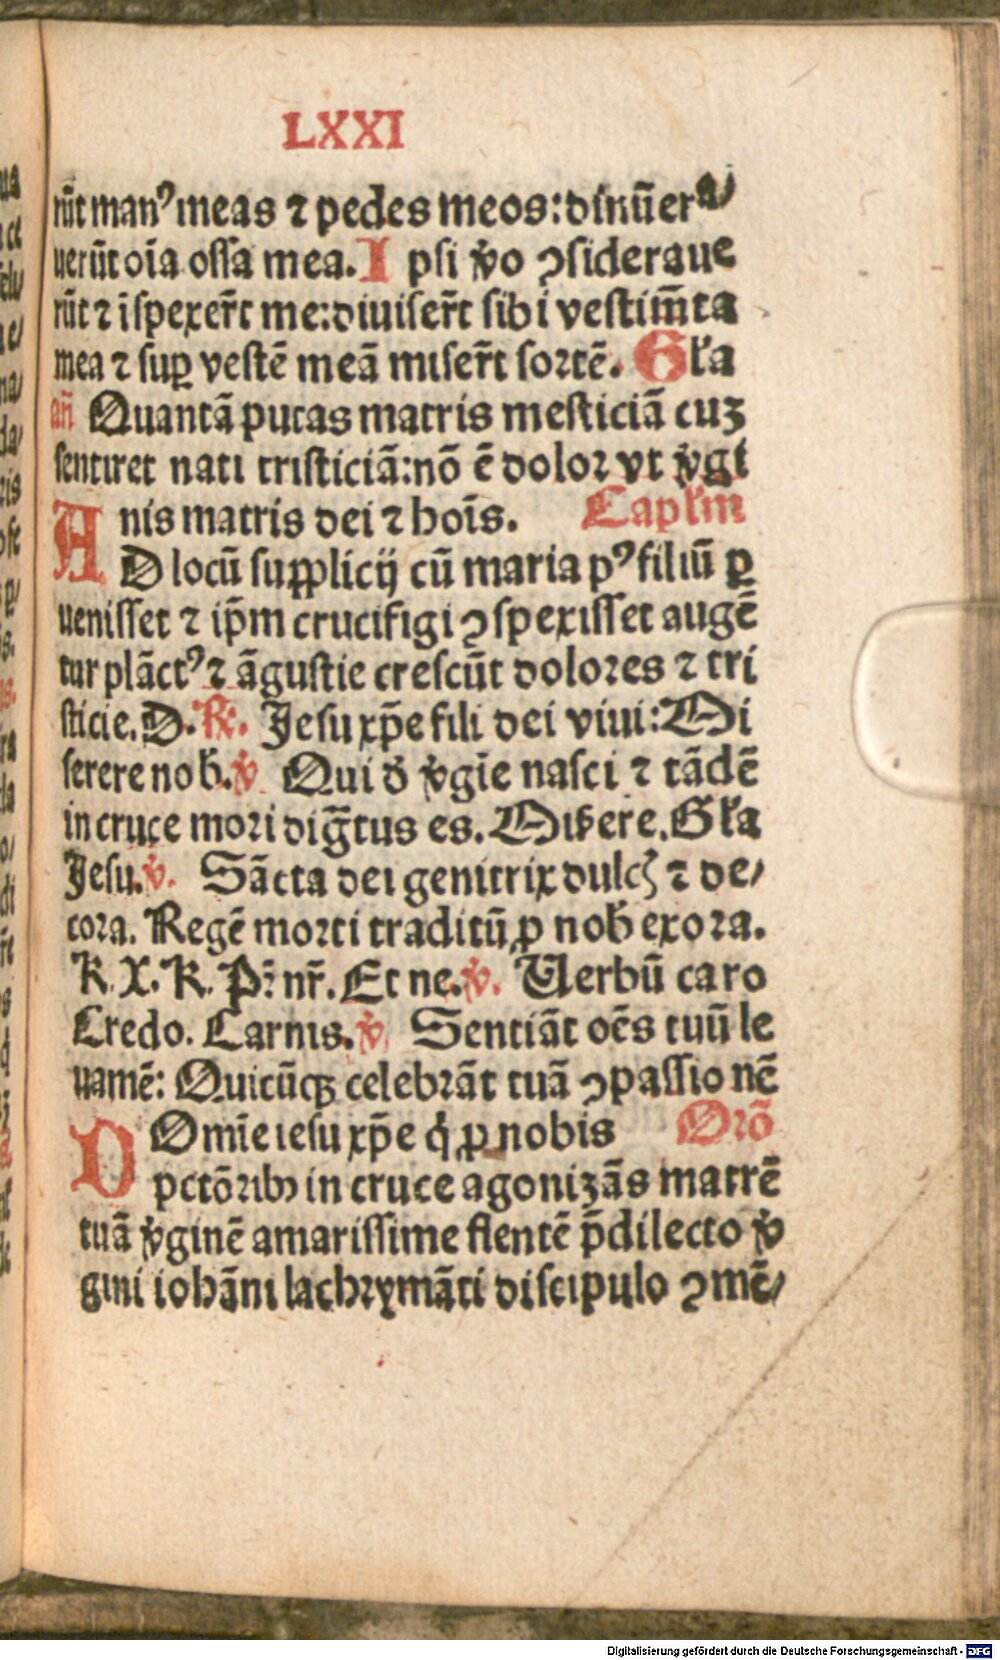 LXXI
rūt manꝰ meas ⁊ pedes meos: dinūera/
uerūt oīa ossa mea. Ipsi v̄o ꝯsideraue
rūt ⁊ īspexer̄t me: diuiser̄t sibi vestim̄ta
mea ⁊ suꝑ vestē meā miser̄t sortē. Gl̄a
an̄ Quantā putas matris mesticiā cuꝫ
sentiret nati tristiciā: nō ē dolor vt v̄gi
nis matris dei ⁊ hoīs. Capl̄m
AD locū supplicij cū maria pꝰ filiū ꝑ
uenisset ⁊ ip̄m crucifigi ꝯspexisset augē
tur plāctꝰ ⁊ āgustie crescūt dolores ⁊ tri
sticie. D. R̄. Jesu xp̄e fili dei viui: Mi
serere nob̄. v̄ Qui d̄ v̄gīe nasci ⁊ tādē
in cruce mori diḡtus es. Mis̄ere. Gl̄a
Jesu. v̄. Sācta dei genitrix dulcꝭ ⁊ de/
cora. Regē morti traditū ꝓ nob̄ exora.
K. X. K. P̄r nr̄. Et ne. v̄. Uerbū caro
Credo. Carnis. v̄ Sentiāt oēs tuū le
uamē: Quicūqꝫ celebrāt tuā ꝯpassionē
DOmīe iesu xp̄e q̇ ꝓ nobis Orō
pctōribꝰ in cruce agonizās matrē
tuā v̄ginē amarissime flentē p̄dilecto v̄
gini iohāni lachrymāti discipulo ꝯmē/
Digitalisierung gefördert durch die Deutsche Forschungsgemeinschaft - DFG